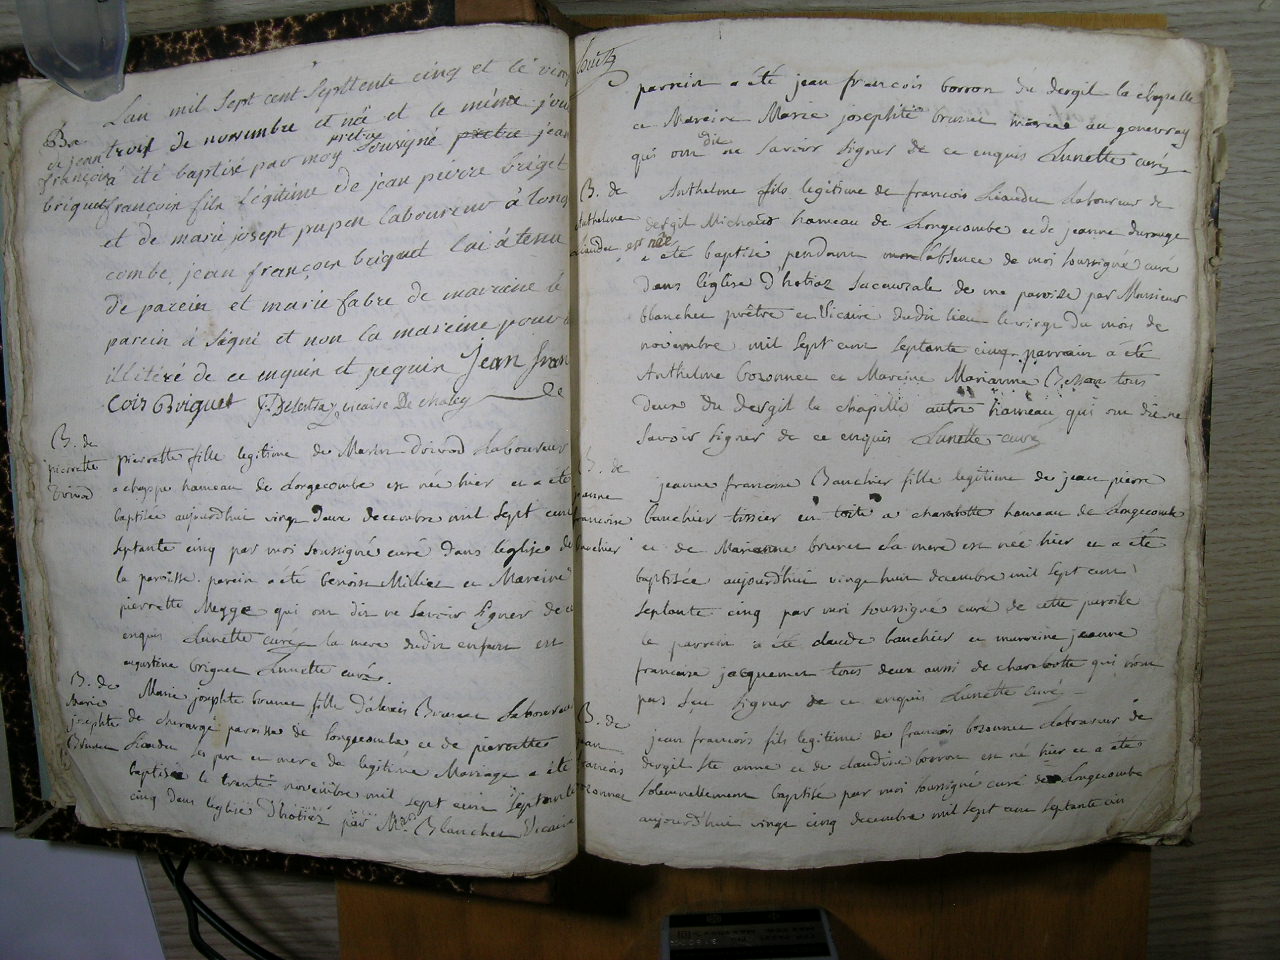 Lan mil sept cent septtente cinq et le vin
Ba
de jean
françois
briquet
trois de novembre et né et le même jou
à été baptisé par moy prêtre sousigné jean
françois fils légitime de jean pierre briqet
et de marie josept pupon laboureur à long
combe jean françois briquet lui à tenu
de parein et marie fabre de mareine le
parein à signé et non la mareine pour
illitéré de ce enquis et requis Jean fran
cois Briquet vicaire De
B. de
pierrette
pierrette fille legitime de Marin laboureur
a chappe hameau de Longecombe est née hier et a été
baptisée aujourdhui vingt deux decembre mil sept cent
septante cinq par moi soussigné curé dans léglise de
la paroisse. parein a été benoit Milliet et Mareine
pierrette Megge qui ont dit ne savoir signer de ce
enquis Lunette curé la mere dudit enfant est
augustine briguet Lunette curé.
B. de
Marie
josephte
Brunet
Marie josephte brunet fille d'alexis Brunet laboureur
de chevange paroisse de Longecombe et de pierrette
Liaudet ses pere et mere de legitime Mariage a été
baptisée le trente novembre mil sept cent septante
cinq dans léglise d'hotiaz par Mr Blanchet Vicaire
huit
parrein a été jean françois borron du dergit la chapelle
et Mareine Marie josephte brunet mariée au genevray
qui ont dit ne savoir signer de ce enquis Lunette curé
B. de
Anthelme
Liaudet
Anthelme fils legitime de francois Liaudet laboureur de
dergit Michaud hameau de Longecombe et de jeanne durouge
est née
a été baptisé pendant l'absence de moi soussigné curé
dans léglise d'hotiaz succursale de ma paroisse par Monsieur
blanchet prêtre et Vicaire dudit lieu le vingt du mois de
novembre mil sept cent septante cinq parrain a été
Anthelme bozonnet et Mareine Marianne Besson tous
deux du dergit la chapelle autre hameau qui ont dit ne
savoir signer de ce enquis Lunette curé
B. de
jeanne
francoise
banchier
jeanne francoise Banchier fille legitime de jean pierre
banchier tissier en toile a charabotte hameau de Longecombe
et de Marianne brunet sa mere est née hier et a été
baptisée aujourdhui vingt huit decembre mil sept cent
septante cinq par moi soussigné curé de cette paroisse
le parrein a été claude banchier et marreine jeanne
francoise jacquemet tous deux aussi de charabotte qui n'ont
pas sçu signer de ce enquis Lunette curé
B. de
jean
francois
bozonnet
jean francois fils legitime de francois bozonnet laboureur de
dergit ste anne et de claudine borron est né hier et a été
solemnellement baptisé par moi soussigné curé de Longecombe
aujourdhui vingt cinq decembre mil sept cent septante cin